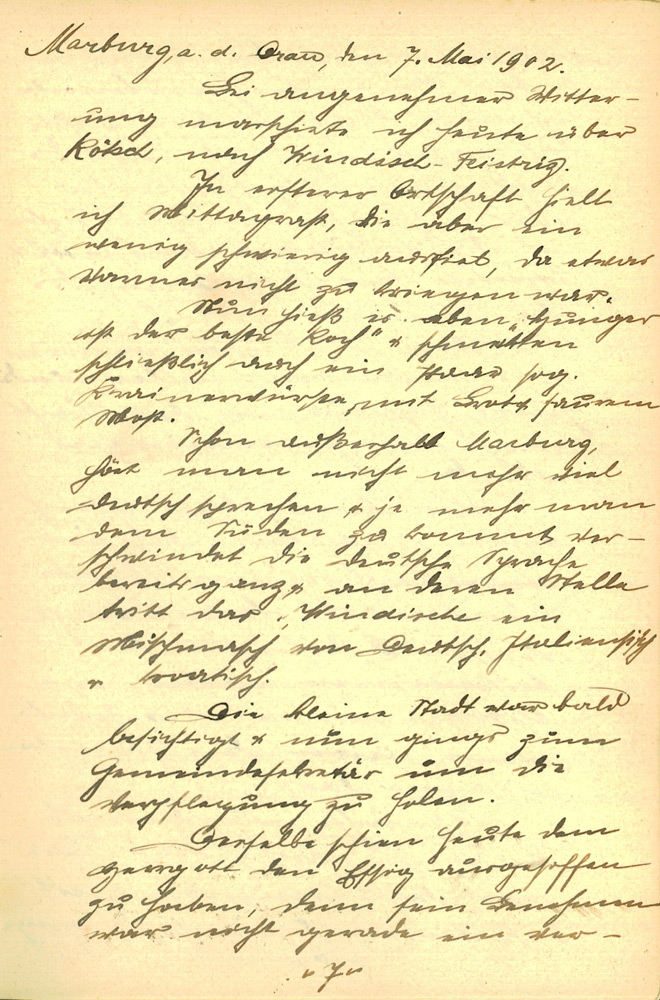 Marburg, a. d. Drau, den 7. Mai 1902.
Bei angenehmer Witter-
ung marschierte ich heute über
Kötsch, nach Windisch-Feistriz.
In ersterer Ortschaft hielt
ich Mittagrast, die aber ein
wenig schwierig ausfiel, da etwas
warmes nicht zu kriegen war.
Nun hieß es eben „Hunger
ist der beste Koch“ & schmekten
schließlich auch ein paar sog.
Krainerwürste, mit Brot & saurem
Most.
Schon außerhalb Marburg,
hört man nicht mehr viel
deutsch sprechen & je mehr man
dem Süden zu kommt ver-
schwindet die deutsche Sprache
bereits ganz & an deren Stelle
tritt das Windische ein
Mischmasch von Deutsch, Italienisch
& kroatisch.
Die kleine Stadt war bald
besichtigt & nun gings zum
Gemeindesekretär um die
Verpflegung zu holen.
Derselbe schien heute dem
Herrgott den Essig ausgesoffen
zu haben, denn sein Benehmen
war nicht gerade ein ver-
„7“